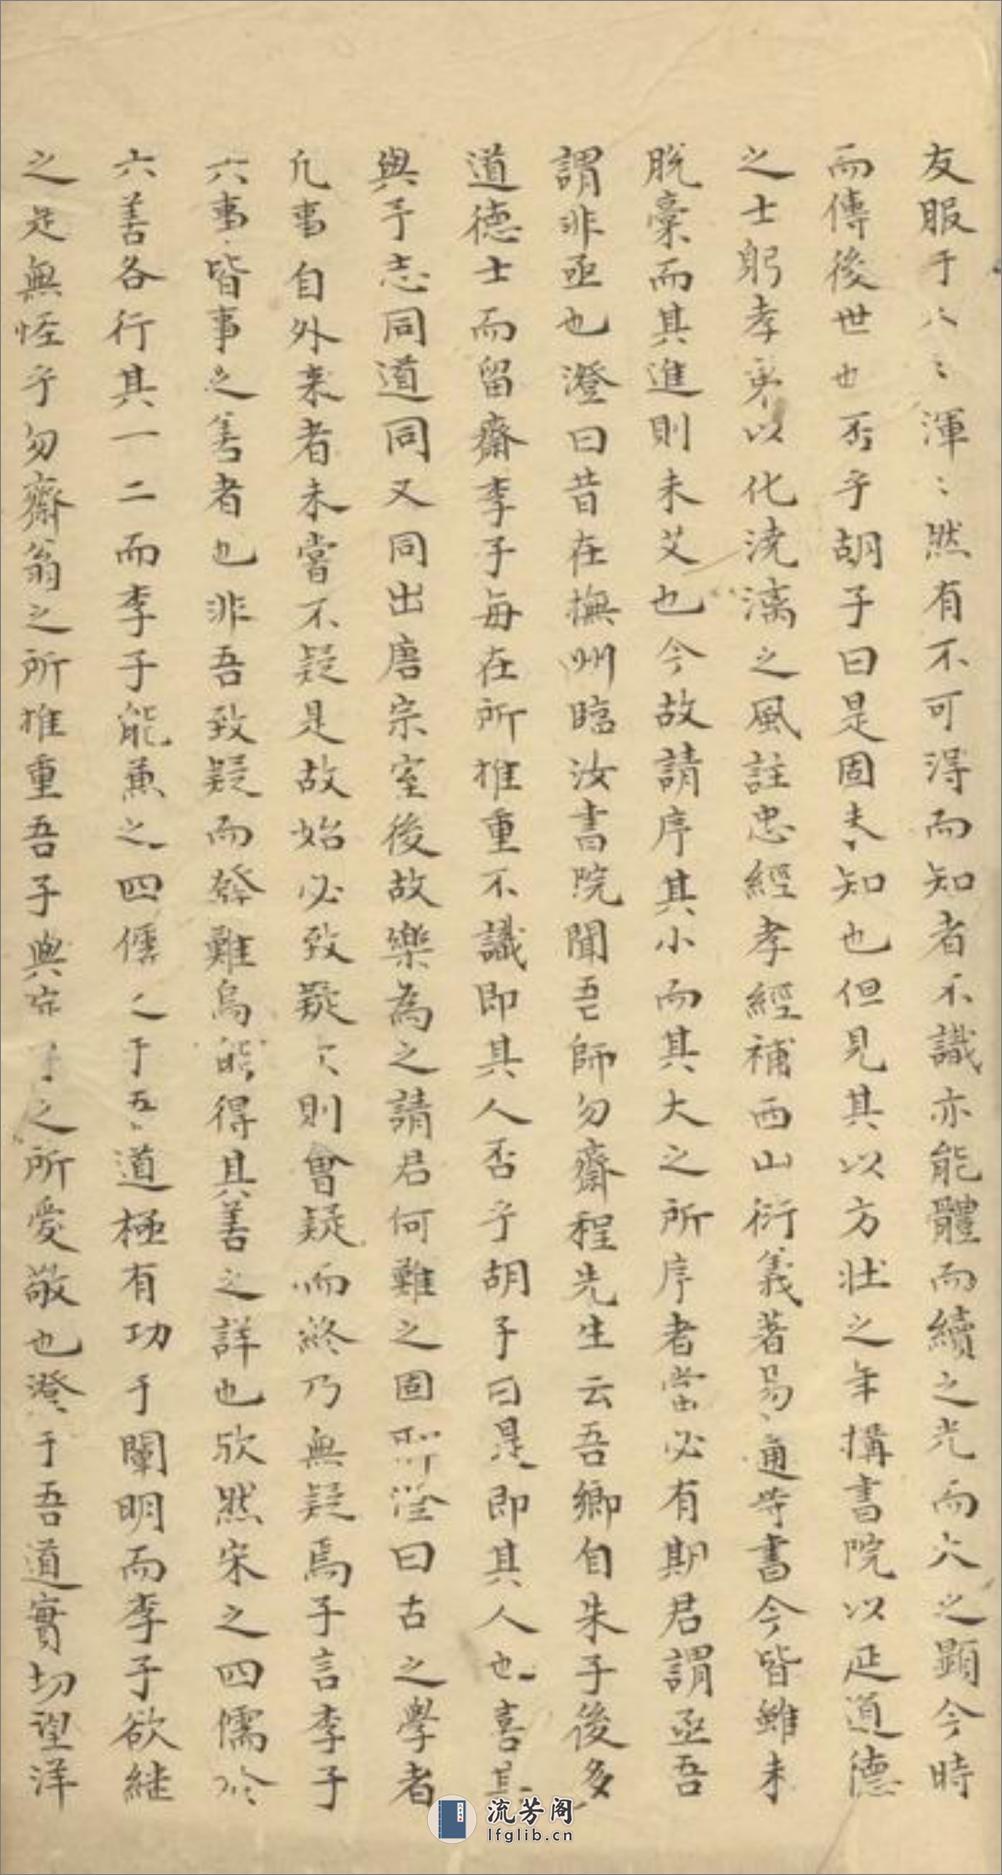 友服于人〻渾〻然有不可得而知者不識亦能體而續之光而大之顯今時
而傳後世也否乎胡子曰是固未知也但見其以方壯之年搆書院以延道德
之士躬孝弟以化澆漓之風註忠經孝經補西山衍義著易通等書今皆雖未
脫稾而其進則未艾也今故請序其小而其大之所序者當必有期君謂亟吾
謂非亟也澄曰昔在撫州臨汝書院聞吾師勿齋程先生云吾鄉自朱子後多
道德士而留齋李子每在所推重不識即其人否乎胡子曰是即其人也喜其
與予志同道同又同出唐宗室後故樂為之請君何難之固耶澄曰古之學者
凡事自外来者未嘗不疑是故始必致疑〻則會疑而終乃無疑焉子言李子
六事皆事之善者也非吾致疑而發難烏能得其善之詳也欣然宋之四儒於
六善各行其一二而李子能兼之四儒之于吾道極有功于闡明而李子欲継
之是無怪乎勿齋翁之所推重吾子與之所愛敬也澄于吾道實切望洋
流芳阁
lfglib.cn